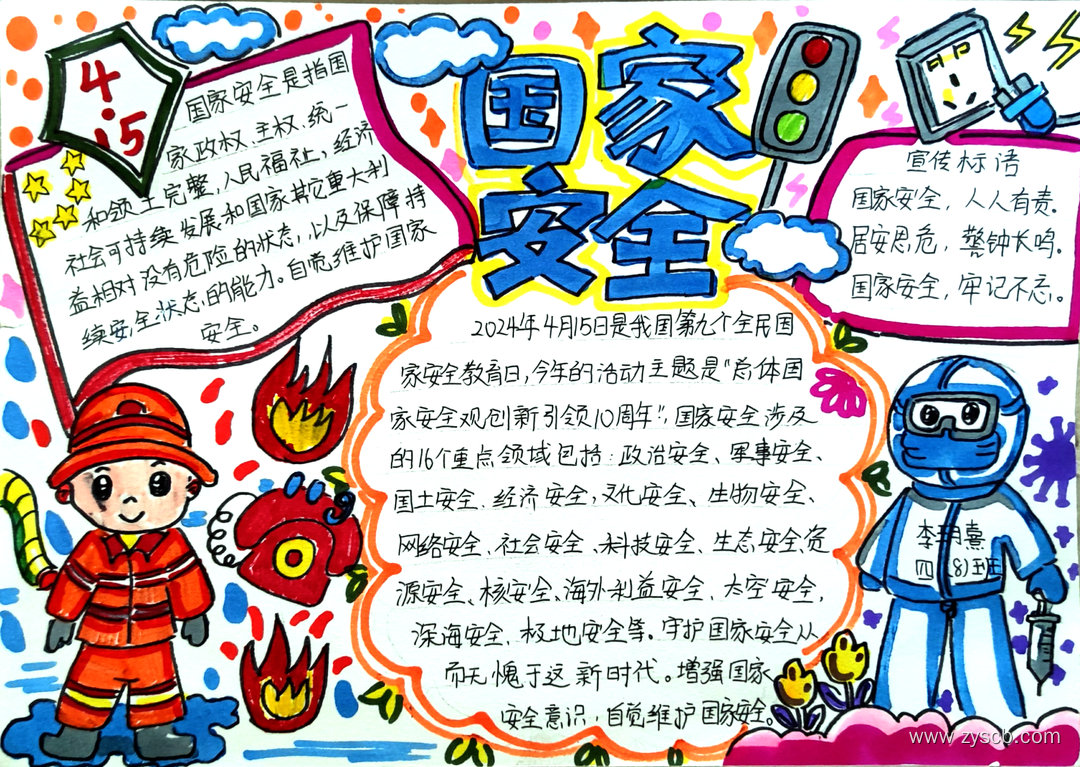 4.15
国家安全是指国
家政权、主权、统一
和领土完整，人民福祉，经济
社会可持续发展和国家其它重大利
益相对没有危险的状态，以及保障持
续安全状态的能力。自觉维护国家
安全。
国家
安全
宣传标语
国家安全，人人有责。
居安思危，警钟长鸣。
国家安全，牢记不忘。
2024年4月15日是我国第九个全民国
家安全教育日，今年的活动主题是“总体国
家安全观创新引领10周年”，国家安全涉及
的16个重点领域包括：政治安全、军事安全、
国土安全、经济安全，文化安全、生物安全、
网络安全、社会安全、科技安全、生态安全、资
源安全、核安全、海外利益安全、太空安全，
深海安全、极地安全等。守护国家安全从
而无愧于这新时代。增强国家
安全意识，自觉维护国家安全。
李玥熹
四(8)班
www.zyscb.com